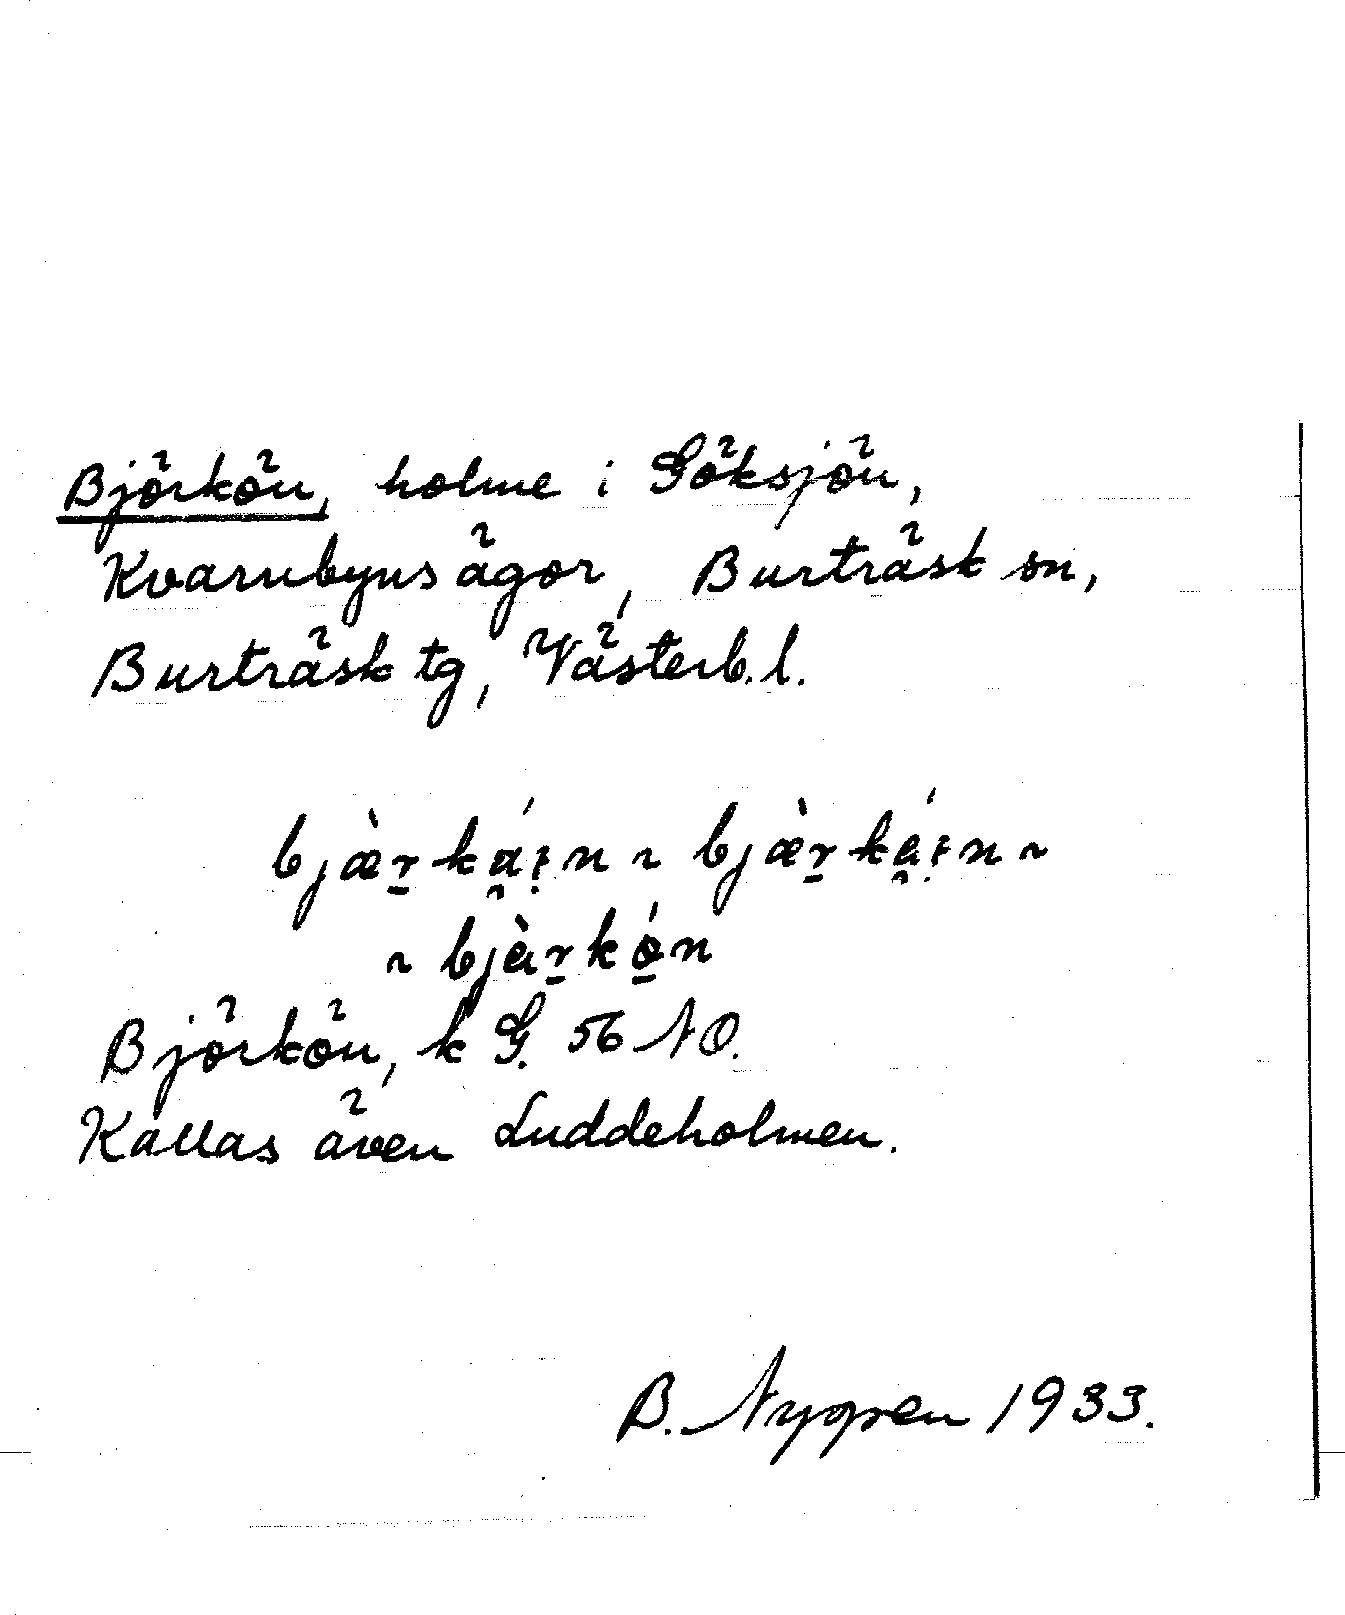 Björkön, holme i Göksjön,
Kvarnbyns ägor, Burträsk sn,
Burträsk tg, Västerb. l.
bjæ̀r̲ká̯ı̣n ~ bjæ̀r̲ká̯ı̣n ~
~ bjàr̲kǿ̲n
Björkön, k G. 56 NO.
Kallas även Luddeholmen.
B. Nygren 1933.